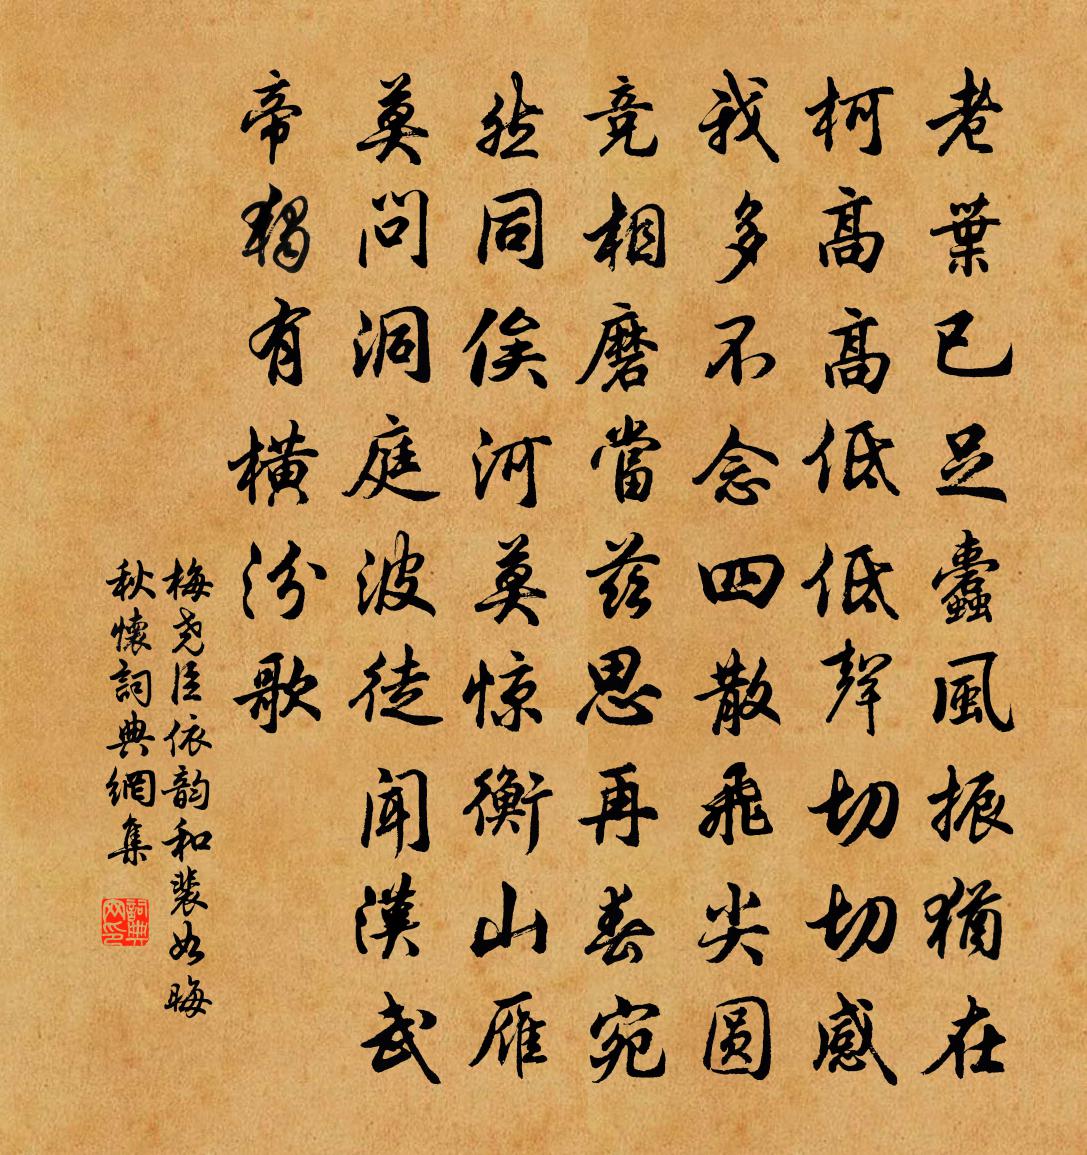 老葉已足蠹風振猶在
柯高高低低聲切切感
我多不念四散飛尖圓
竞相磨當茲思再春宛
然同俟河莫惊衡山雁
莫问洞庭波徒闻漢武
帝獨有横汾歌
梅尧臣依韵和裴如晦
秋懷詞典網集
詞典网印